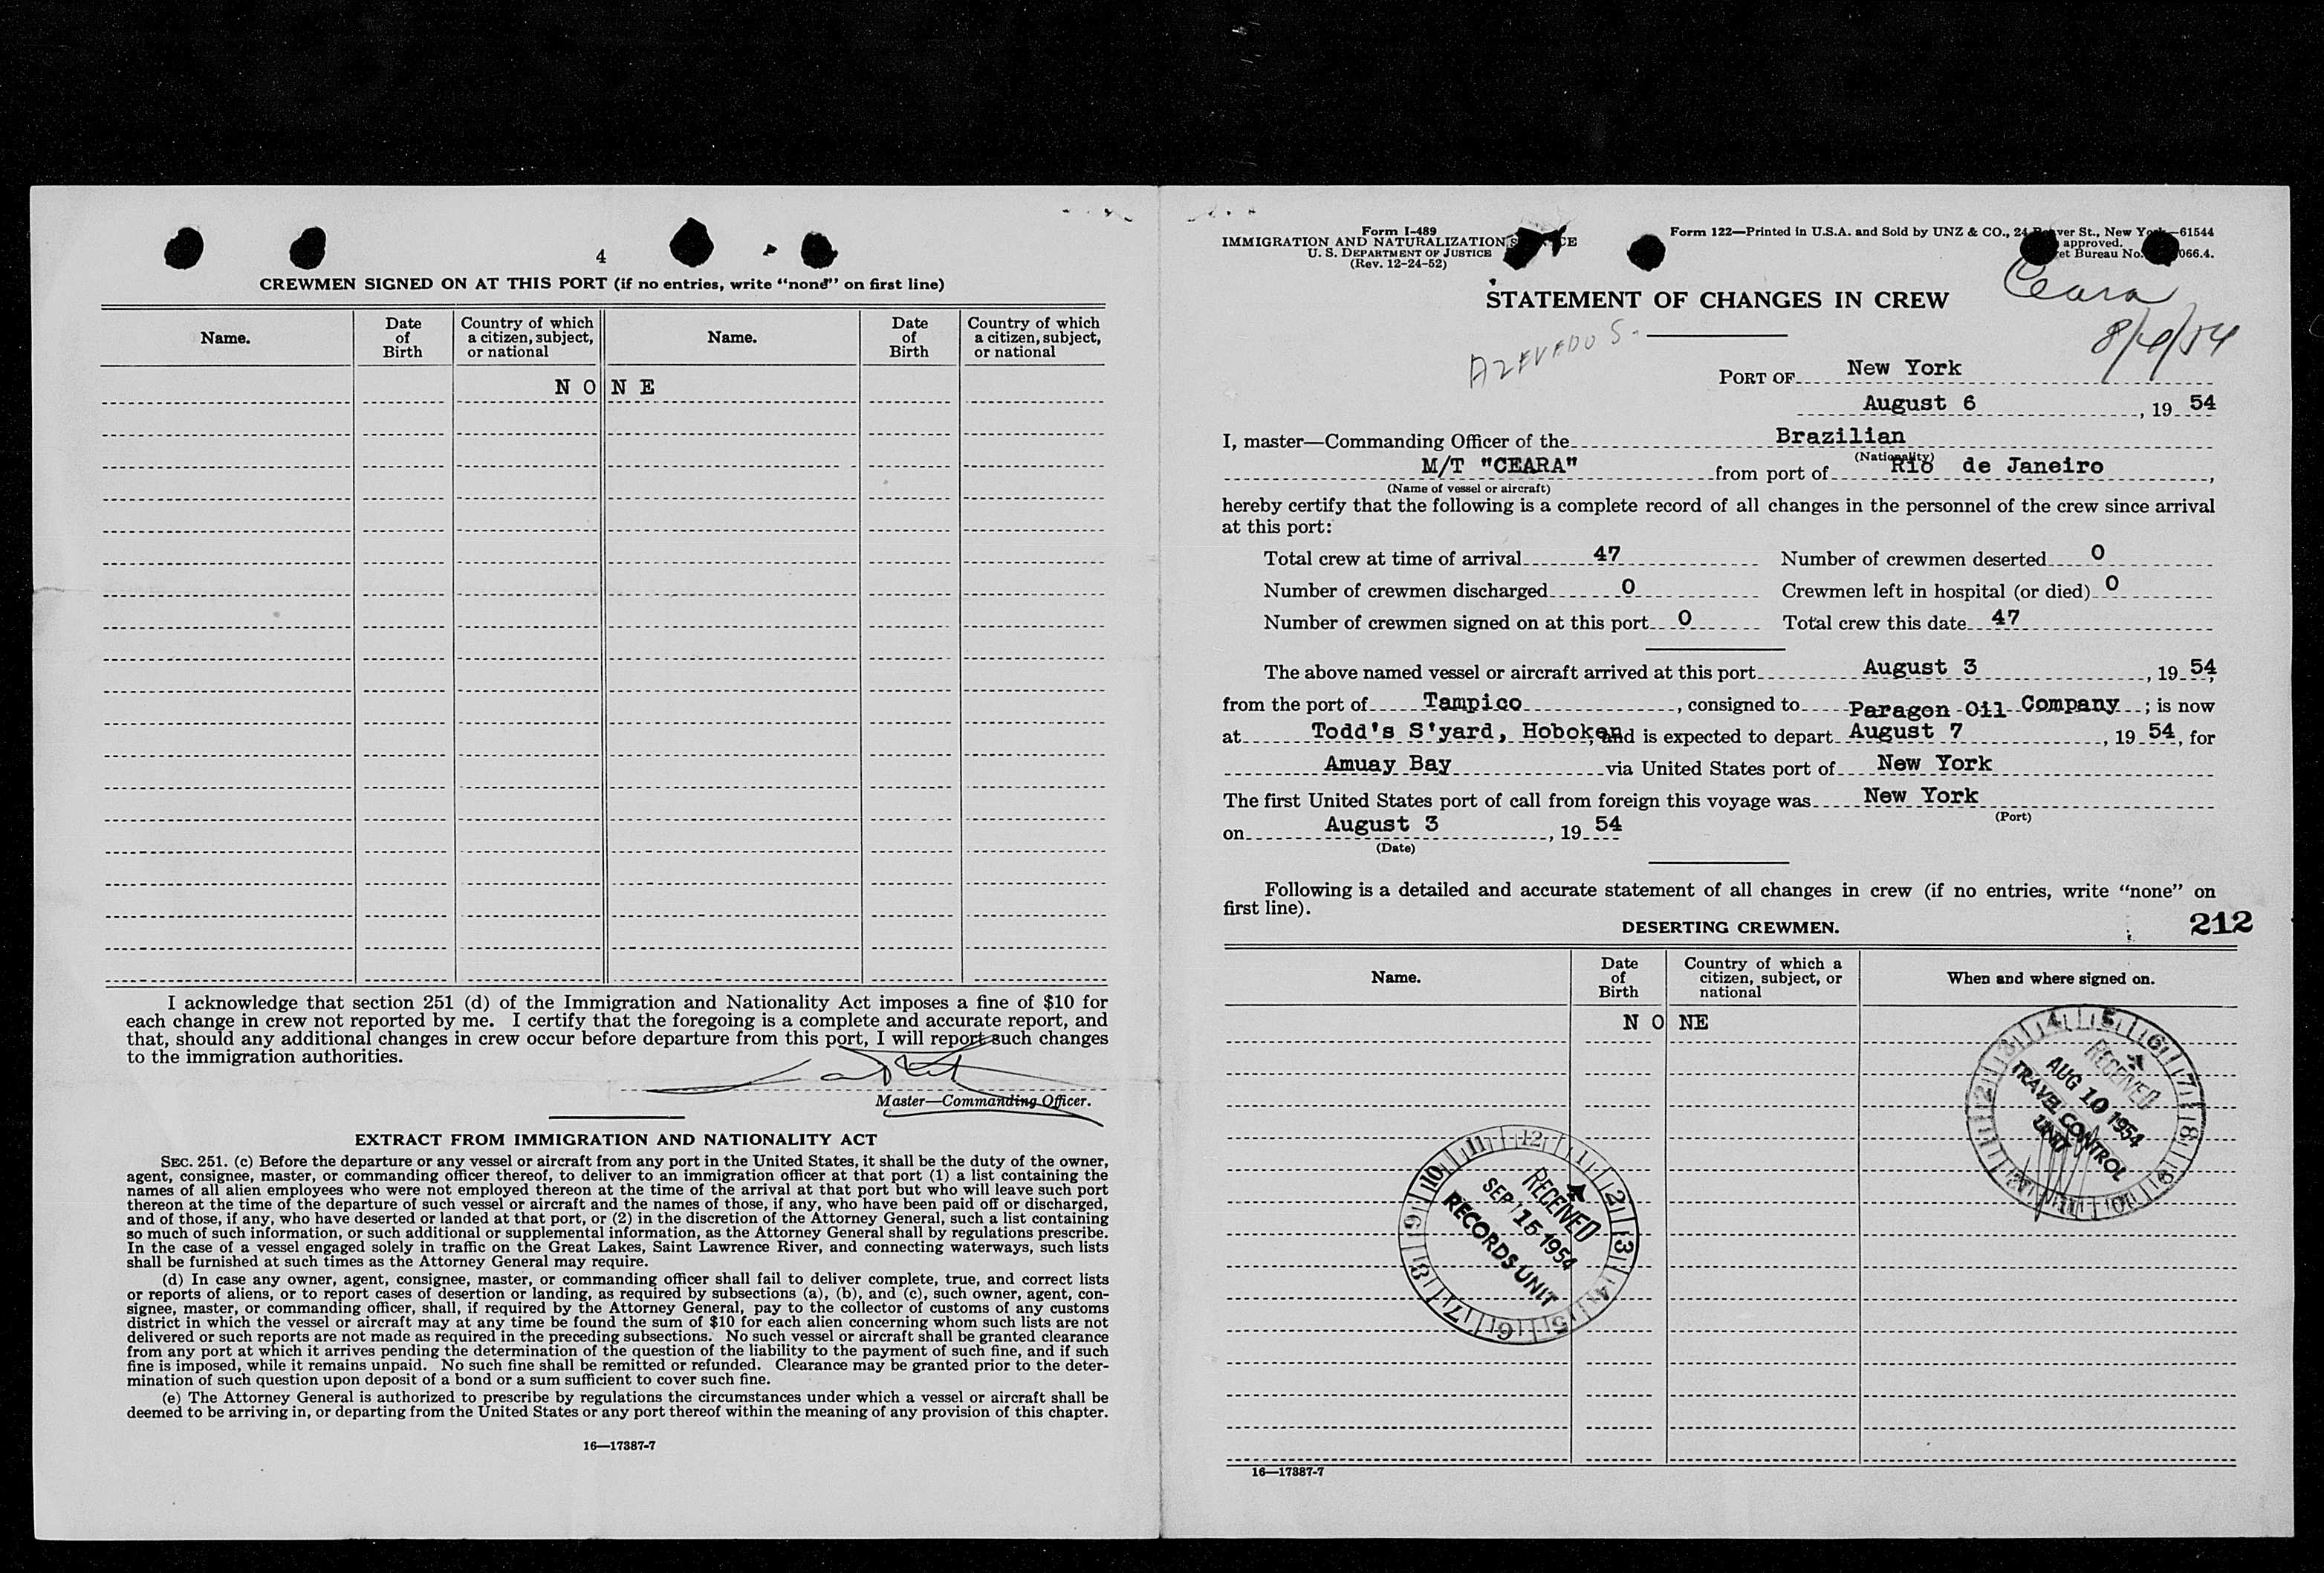 4
CREWMEN SIGNED ON AT THIS PORT (if no entries, write “none” on first line)
Name. Date of Birth Country of which a citizen, subject, or national Name. Date of Birth Country of which a citizen, subject, or national
N O N E
I acknowledge that section 251 (d) of the Immigration and Nationality Act imposes a fine of $10 for
each change in crew not reported by me. I certify that the foregoing is a complete and accurate report, and
that, should any additional changes in crew occur before departure from this port, I will report such changes
to the immigration authorities.
Master—Commanding Officer.
EXTRACT FROM IMMIGRATION AND NATIONALITY ACT
SEC. 251. (c) Before the departure or any vessel or aircraft from any port in the United States, it shall be the duty of the owner,
agent, consignee, master, or commanding officer thereof, to deliver to an immigration officer at that port (1) a list containing the
names of all alien employees who were not employed thereon at the time of the arrival at that port but who will leave such port
thereon at the time of the departure of such vessel or aircraft and the names of those, if any, who have been paid off or discharged,
and of those, if any, who have deserted or landed at that port, or (2) in the discretion of the Attorney General, such a list containing
so much of such information, or such additional or supplemental information, as the Attorney General shall by regulations prescribe.
In the case of a vessel engaged solely in traffic on the Great Lakes, Saint Lawrence River, and connecting waterways, such lists
shall be furnished at such times as the Attorney General may require.
(d) In case any owner, agent, consignee, master, or commanding officer shall fail to deliver complete, true, and correct lists
or reports of aliens, or to report cases of desertion or landing, as required by subsections (a), (b), and (c), such owner, agent, con-
signee, master, or commanding officer, shall, if required by the Attorney General, pay to the collector of customs of any customs
district in which the vessel or aircraft may at any time be found the sum of $10 for each alien concerning whom such lists are not
delivered or such reports are not made as required in the preceding subsections. No such vessel or aircraft shall be granted clearance
from any port at which it arrives pending the determination of the question of the liability to the payment of such fine, and if such
fine is imposed, while it remains unpaid. No such fine shall be remitted or refunded. Clearance may be granted prior to the deter-
mination of such question upon deposit of a bond or a sum sufficient to cover such fine.
(e) The Attorney General is authorized to prescribe by regulations the circumstances under which a vessel or aircraft shall be
deemed to be arriving in, or departing from the United States or any port thereof within the meaning of any provision of this chapter.
16—17387-7
Form I-489
IMMIGRATION AND NATURALIZATION
U. S. DEPARTMENT OF JUSTICE
(Rev. 12-24-52)
Form 122—Printed in U.S.A. and Sold by UNZ & CO., 24 St., New 61544
approved.
Bureau No. 066.4.
Ceara
STATEMENT OF CHANGES IN CREW
AZEVEDO S.
PORT OF New York
August 6, 19 54
I, master—Commanding Officer of the Brazilian
(Nationality)
M/T "CEARA" from port of Rio de Janeiro,
(Name of vessel or aircraft)
hereby certify that the following is a complete record of all changes in the personnel of the crew since arrival
at this port:
Total crew at time of arrival 47 Number of crewmen deserted 0
Number of crewmen discharged 0 Crewmen left in hospital (or died) 0
Number of crewmen signed on at this port 0 Total crew this date 47
The above named vessel or aircraft arrived at this port August 3, 19 54,
from the port of Tampico, consigned to Paragon Oil Company; is now
at Todd's S'yard, Hoboken, and is expected to depart August 7, 19 54, for
Amuay Bay via United States port of New York
The first United States port of call from foreign this voyage was New York
(Port)
on August 3, 19 54
(Date)
Following is a detailed and accurate statement of all changes in crew (if no entries, write “none” on
first line).
212
DESERTING CREWMEN.
Name. Date of Birth Country of which a citizen, subject, or national When and where signed on.
N O NE
RECEIVED
AUG 10 1954
TRAVEL CONTROL
UNIT
RECEIVED
SEP 15 1954
RECORDS UNIT
16—17387-7